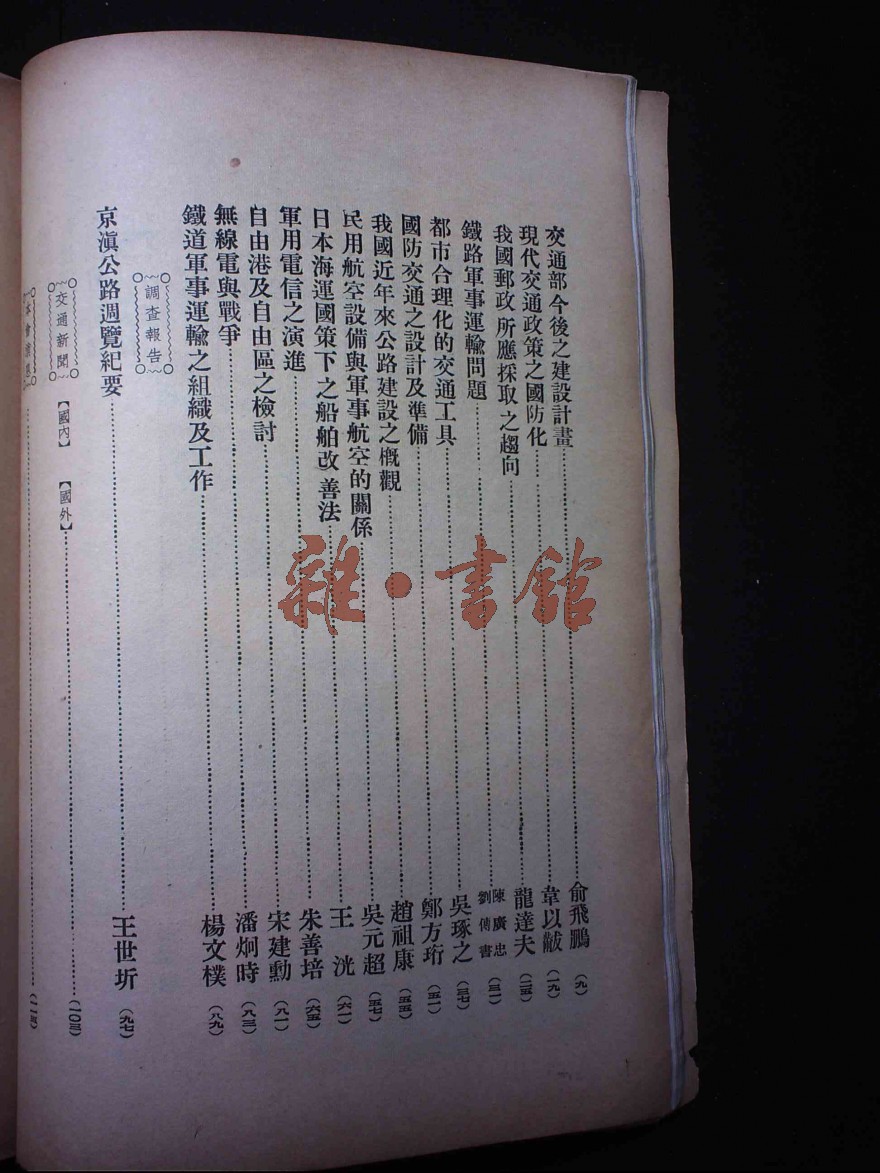 交通部今後之建設計畫……俞飛鵬（九）
現代交通政策之國防化……韋以黻（一九）
我國郵政所應採取之趨向……龍達夫（二五）
鐵路軍事運輸問題……陳廣忠 劉傳書（三一）
都市合理化的交通工具……吳琢之（三七）
國防交通之設計及準備……鄭方珩（五一）
我國近年來公路建設之概觀……趙祖康（五五）
民用航空設備與軍事航空的關係……吳元超（五七）
日本海運國策下之船舶改善法……王洸（六一）
軍用電信之演進……朱善培（六五）
自由港及自由區之檢討……宋建勳（八一）
無線電與戰爭……潘炯時（八三）
鐵道軍事運輸之組織及工作……楊文樸（八九）
調查報告
京滇公路週覽紀要……王世圻（九七）
交通新聞【國內】【國外】……（一〇三）
本會消息
雜·書館